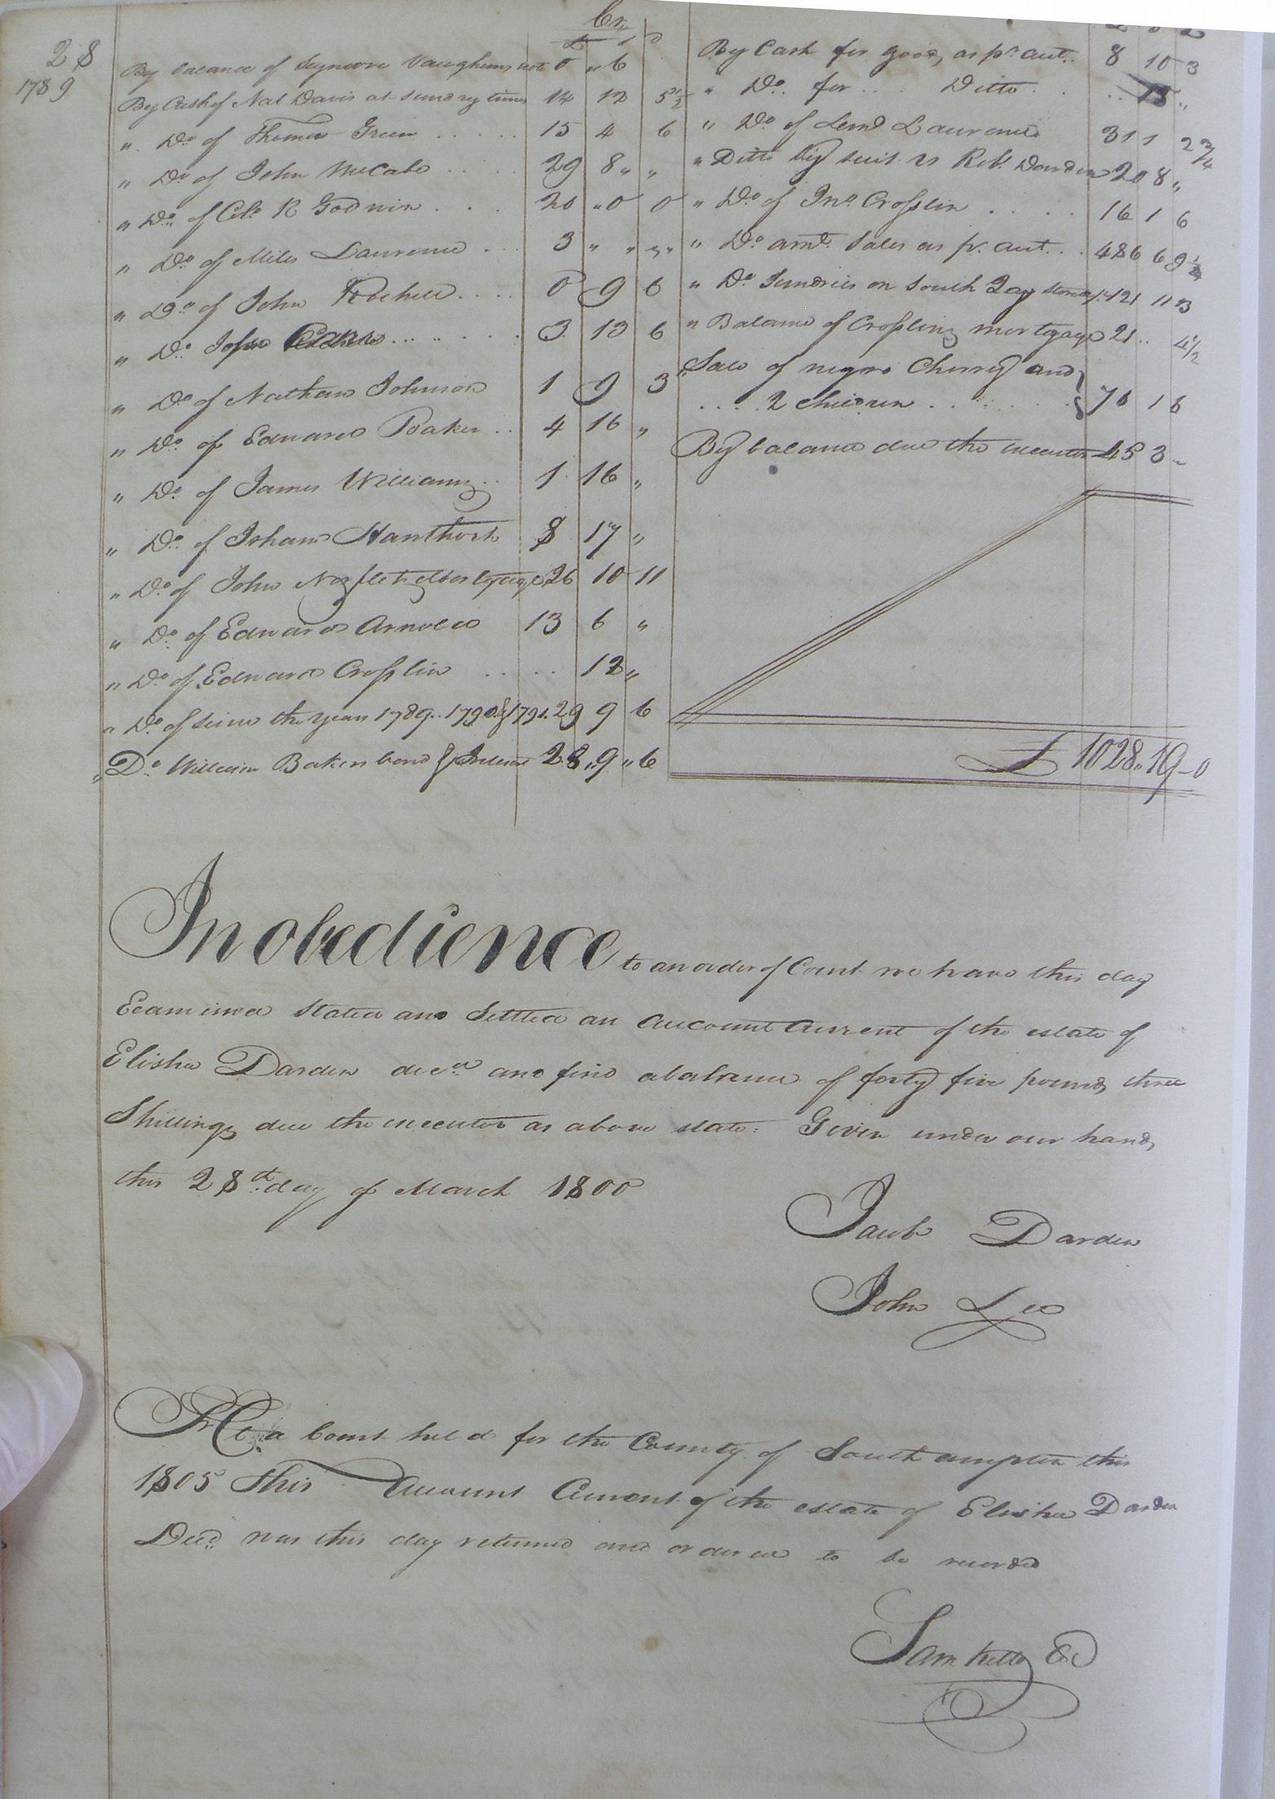 28
1789
Cr.
£ s D
By balance of Seymore Vaughans note 0 " 6
By Cash of Nat Davis at sundry times 14 12 5 1/2
" Do. of Thomas Green 15 4 6
" Do of John McCabe 29 8 " "
" Do. of Colo. R Godwin 20 " 0 0
" Do of Miles Laurence 3 " "
" Do of John 0 9 6
" Do. John 3 13 6
" Do of Nathan Johnson 1 9 3
" Do. of Edward Baker 4 16 "
" Do. of James Williams 1 16 "
" Do. of Johans Hanthork 8 17 "
" Do of John 26 10 11
" Do. of Edward Arnold 13 6 "
" Do. of Edward Crosslin 12 "
" Do. of since the year 1789. 1790 & 1791. 29 9 6
" Do William Bakers bond & Interest 28 " 9 " 6
By Cash for goods, as pr. aut. 8 10 3
" Do. for Ditto 15 "
" Do of Leml Laurence 311 2 3/4
" Ditto by suit vs Rob. Darden 20 8 "
" Do. of Jno. Crosslin 16 1 6
" Do amt. Sales as pr. aut. 486 6 9 1/2
" Do Sundries on South Quay 121 11 3
" Balance of Crosslins mortgage 21 .. 4 1/2
Sale of negro Cherry and
2 children 76 1 6
By balance due the executor 45 3 -
£ 1028 " 19 - 0
In obedience to an order of Court we have this day
Examined stated and Settled an account current of the estate of
Elisha Darden decd. and find a balance of forty five pounds three
Shillings due the executor as above state. Given under our hands
this 28th. day of March 1800
Jacob Darden
John Lee
At a Court held for the County of Southampton this
1805 This Account Current of the estate of Elisha Darden
Decd. was this day returned and ordered to be recorded
Sam Kello CC